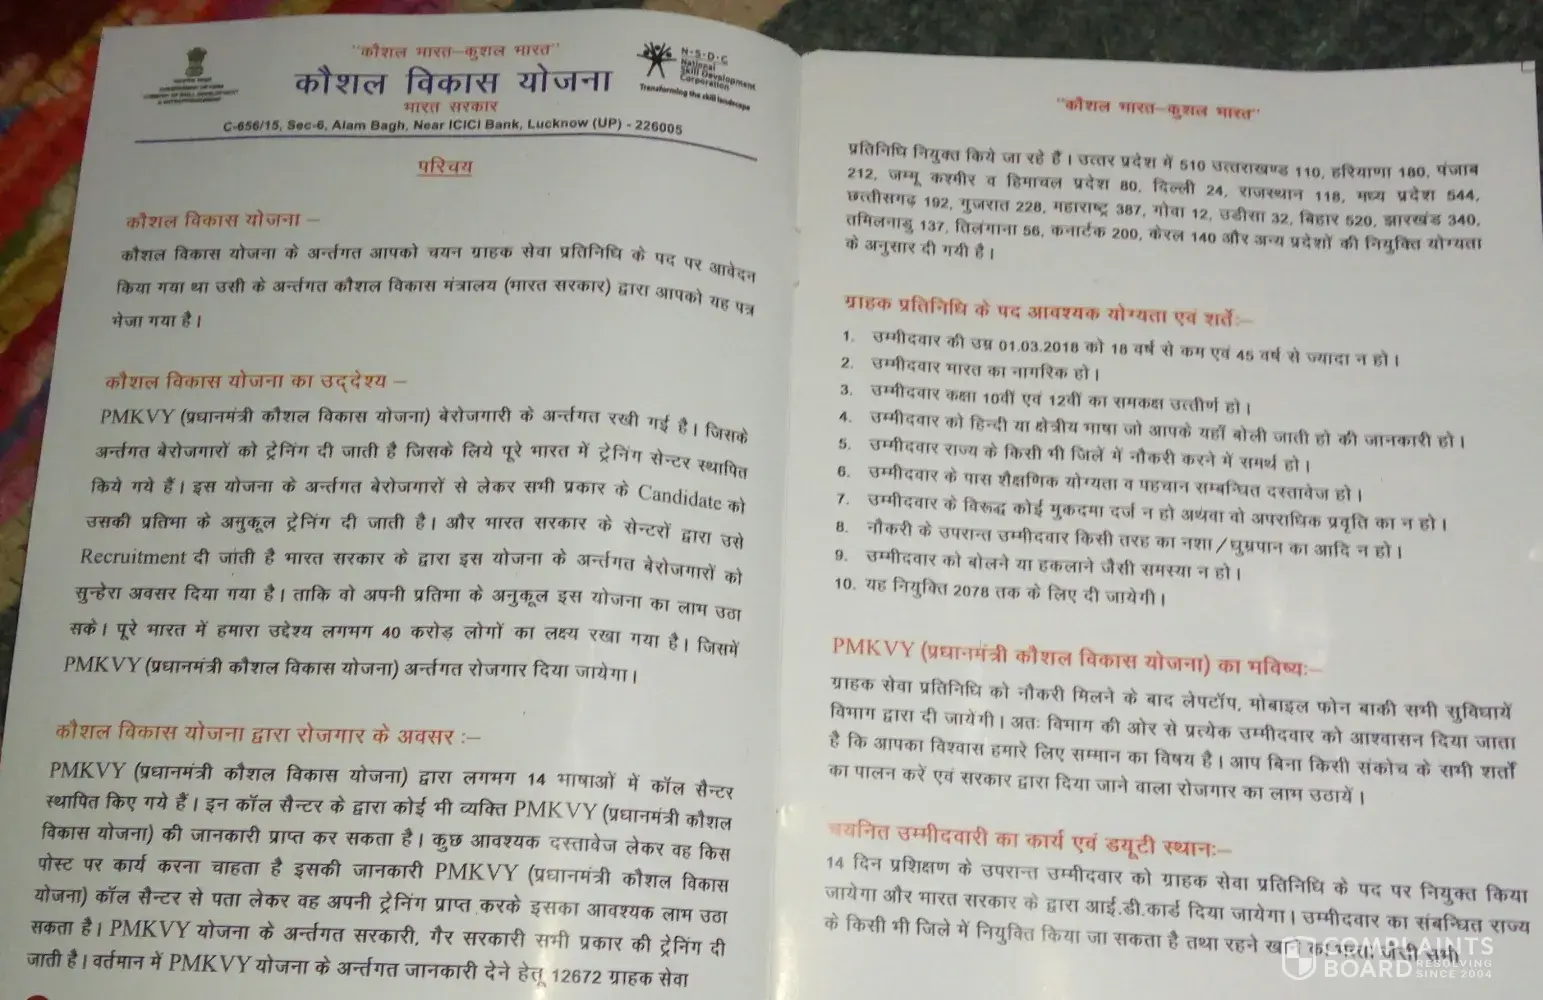 "कौशल भारत–कुशल भारत"
कौशल विकास योजना
भारत सरकार
C-656/15, Sec-6, Alam Bagh, Near ICICI Bank, Lucknow (UP) - 226005
N·S·D·C
National
Skill Development
Corporation
Transforming the skill landscape
परिचय
कौशल विकास योजना –
कौशल विकास योजना के अर्न्तगत आपको चयन ग्राहक सेवा प्रतिनिधि के पद पर आवेदन
किया गया था उसी के अर्न्तगत कौशल विकास मंत्रालय (भारत सरकार) द्वारा आपको यह पत्र
भेजा गया है।
कौशल विकास योजना का उद्देश्य –
PMKVY (प्रधानमंत्री कौशल विकास योजना) बेरोजगारी के अर्न्तगत रखी गई है। जिसके
अर्न्तगत बेरोजगारों को ट्रेनिंग दी जाती है जिसके लिये पूरे भारत में ट्रेनिंग सेन्टर स्थापित
किये गये हैं। इस योजना के अर्न्तगत बेरोजगारों से लेकर सभी प्रकार के Candidate को
उसकी प्रतिभा के अनुकूल ट्रेनिंग दी जाती है। और भारत सरकार के सेन्टरों द्वारा उसे
Recruitment दी जाती है भारत सरकार के द्वारा इस योजना के अर्न्तगत बेरोजगारों को
सुन्हेरा अवसर दिया गया है। ताकि वो अपनी प्रतिभा के अनुकूल इस योजना का लाभ उठा
सके। पूरे भारत में हमारा उद्देश्य लगभग 40 करोड़ लोगों का लक्ष्य रखा गया है। जिसमें
PMKVY (प्रधानमंत्री कौशल विकास योजना) अर्न्तगत रोजगार दिया जायेगा।
कौशल विकास योजना द्वारा रोजगार के अवसर :–
PMKVY (प्रधानमंत्री कौशल विकास योजना) द्वारा लगभग 14 भाषाओं में कॉल सैन्टर
स्थापित किए गये हैं। इन कॉल सैन्टर के द्वारा कोई भी व्यक्ति PMKVY (प्रधानमंत्री कौशल
विकास योजना) की जानकारी प्राप्त कर सकता है। कुछ आवश्यक दस्तावेज लेकर वह किस
पोस्ट पर कार्य करना चाहता है इसकी जानकारी PMKVY (प्रधानमंत्री कौशल विकास
योजना) कॉल सैन्टर से पता लेकर वह अपनी ट्रेनिंग प्राप्त करके इसका आवश्यक लाभ उठा
सकता है। PMKVY योजना के अर्न्तगत सरकारी, गैर सरकारी सभी प्रकार की ट्रेनिंग दी
जाती है। वर्तमान में PMKVY योजना के अर्न्तगत जानकारी देने हेतू 12672 ग्राहक सेवा
"कौशल भारत–कुशल भारत"
प्रतिनिधि नियुक्त किये जा रहे हैं। उत्तर प्रदेश में 510 उत्तराखण्ड 110, हरियाणा 180, पंजाब
212, जम्मू कश्मीर व हिमाचल प्रदेश 80, दिल्ली 24, राजस्थान 118, मध्य प्रदेश 544,
छत्तीसगढ़ 192, गुजरात 228, महाराष्ट्र 387, गोवा 12, उडीसा 32, बिहार 520, झारखंड 340,
तमिलनाडु 137, तिलंगाना 56, कनार्टक 200, केरल 140 और अन्य प्रदेशों की नियुक्ति योग्यता
के अनुसार दी गयी है।
ग्राहक प्रतिनिधि के पद आवश्यक योग्यता एवं शर्ते:–
1. उम्मीदवार की उम्र 01.03.2018 को 18 वर्ष से कम एवं 45 वर्ष से ज्यादा न हो।
2. उम्मीदवार भारत का नागरिक हो।
3. उम्मीदवार कक्षा 10वीं एवं 12वीं का समकक्ष उत्तीर्ण हो।
4. उम्मीदवार को हिन्दी या क्षेत्रीय भाषा जो आपके यहाँ बोली जाती हो की जानकारी हो।
5. उम्मीदवार राज्य के किसी भी जिलें में नौकरी करने में समर्थ हो।
6. उम्मीदवार के पास शैक्षणिक योग्यता व पहचान सम्बन्धित दस्तावेज हो।
7. उम्मीदवार के विरूद्ध कोई मुकदमा दर्ज न हो अथवा वो अपराधिक प्रवृति का न हो।
8. नौकरी के उपरान्त उम्मीदवार किसी तरह का नशा/धुम्रपान का आदि न हो।
9. उम्मीदवार को बोलने या हकलाने जैसी समस्या न हो।
10. यह नियुक्ति 2078 तक के लिए दी जायेगी।
PMKVY (प्रधानमंत्री कौशल विकास योजना) का भविष्य:–
ग्राहक सेवा प्रतिनिधि को नौकरी मिलने के बाद लेपटॉप, मोबाइल फोन बाकी सभी सुविधायें
विभाग द्वारा दी जायेगी। अतः विभाग की ओर से प्रत्येक उम्मीदवार को आश्वासन दिया जाता
है कि आपका विश्वास हमारे लिए सम्मान का विषय है। आप बिना किसी संकोच के सभी शर्तों
का पालन करें एवं सरकार द्वारा दिया जाने वाला रोजगार का लाभ उठायें।
चयनित उम्मीदवारी का कार्य एवं डयूटी स्थान:–
14 दिन प्रशिक्षण के उपरान्त उम्मीदवार को ग्राहक सेवा प्रतिनिधि के पद पर नियुक्त किया
जायेगा और भारत सरकार के द्वारा आई.डी.कार्ड दिया जायेगा। उम्मीदवार का संबन्धित राज्य
के किसी भी जिले में नियुक्ति किया जा सकता है तथा रहने का भत्ता, जैसी सभी
COMPLAINTS
BOARD RESOLVING
SINCE 2004